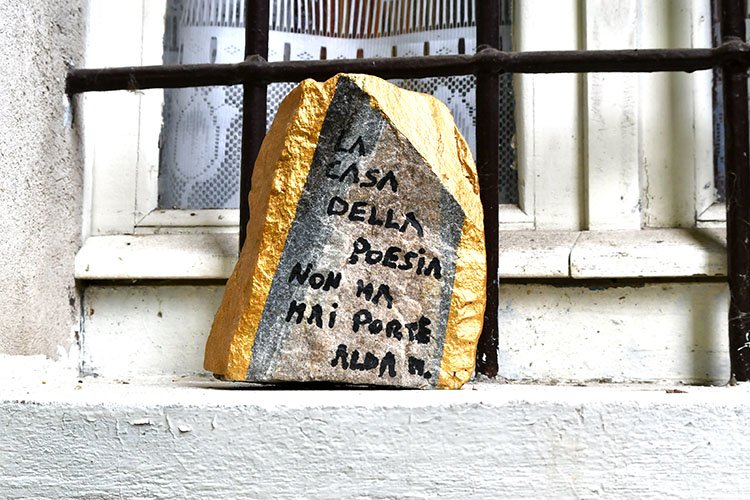 LA
CASA
DELLA
POESIA
NON HA
MAI PORTE
ALDA M.